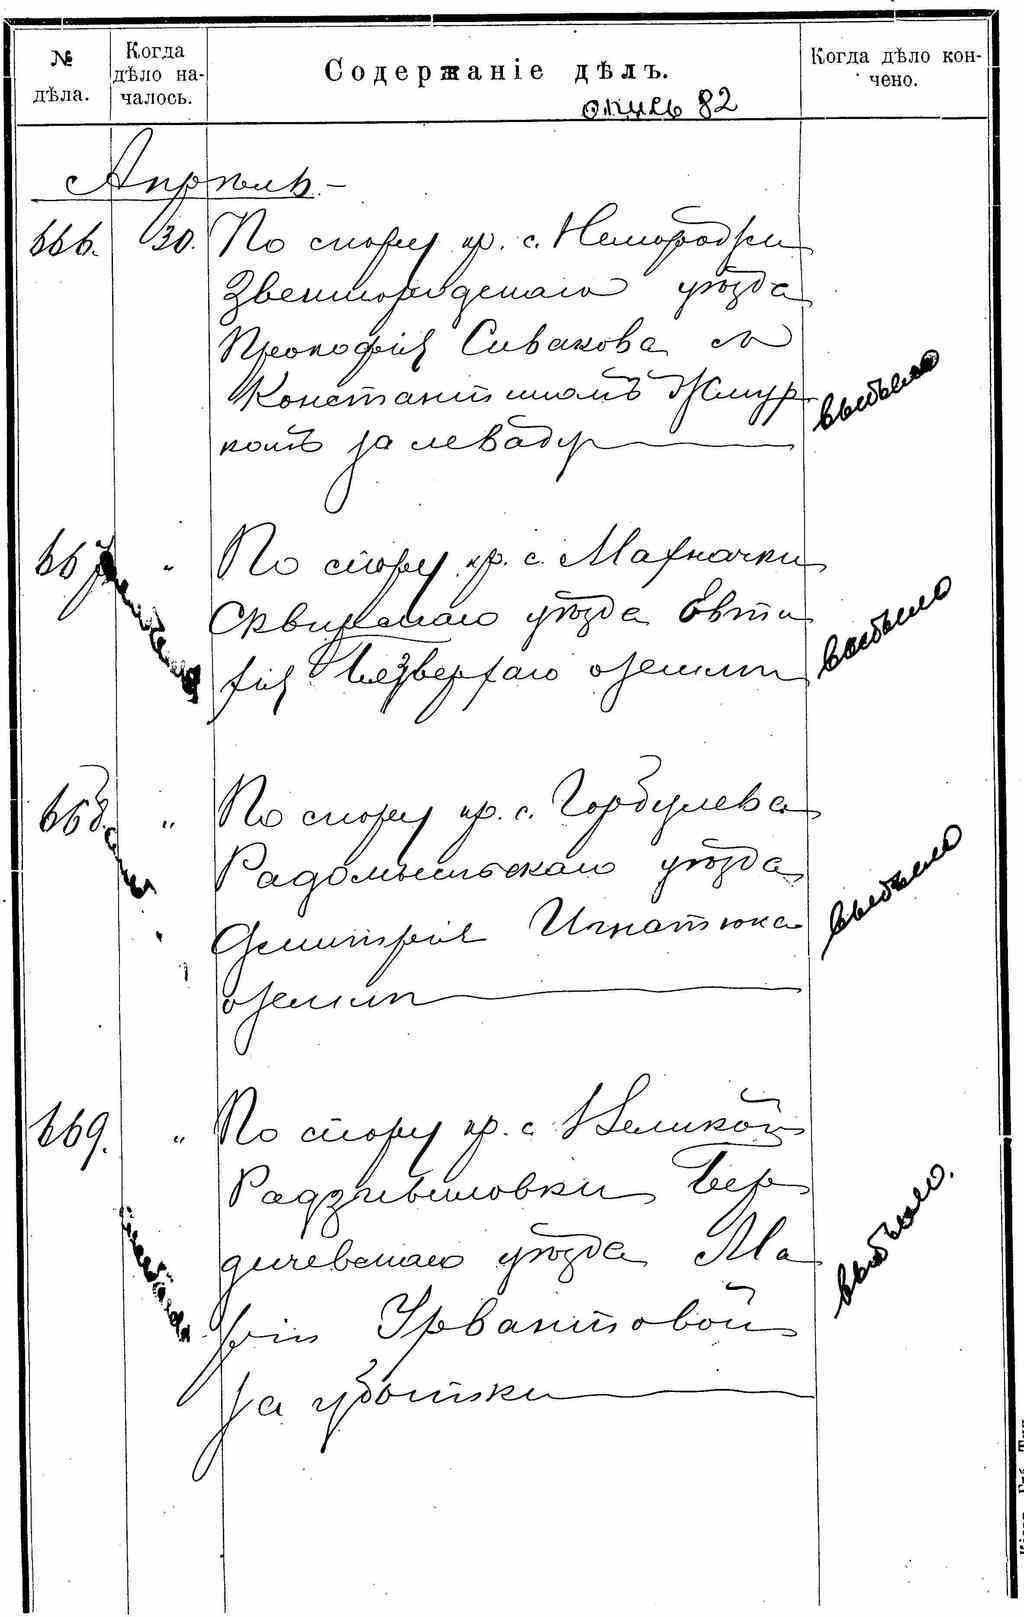 № дѣла.
Когда дѣло началось.
Содержаніе дѣлъ.
Когда дѣло кончено.
опись 82
Апрѣль
666. 30. По спору кр. с. Неморожи
Звенигородскаго уѣзда
Прокофія Сивакова съ
Константиномъ Жмур
комъ за леваду
выбыло
667 " По спору кр. с. Махначки
Сквирскаго уѣзда Евти
хія Безверхаго о землѣ
выбыло
668. " По спору кр. с. Горбулева
Радомысльскаго уѣзда
Дмитрія Игнатюка
о землѣ
выбыло
669. " По спору кр. с. Великой
Радзивиловки Бер
дичевскаго уѣзда Ма
ріи Урвантовой
за убытки
выбыло.